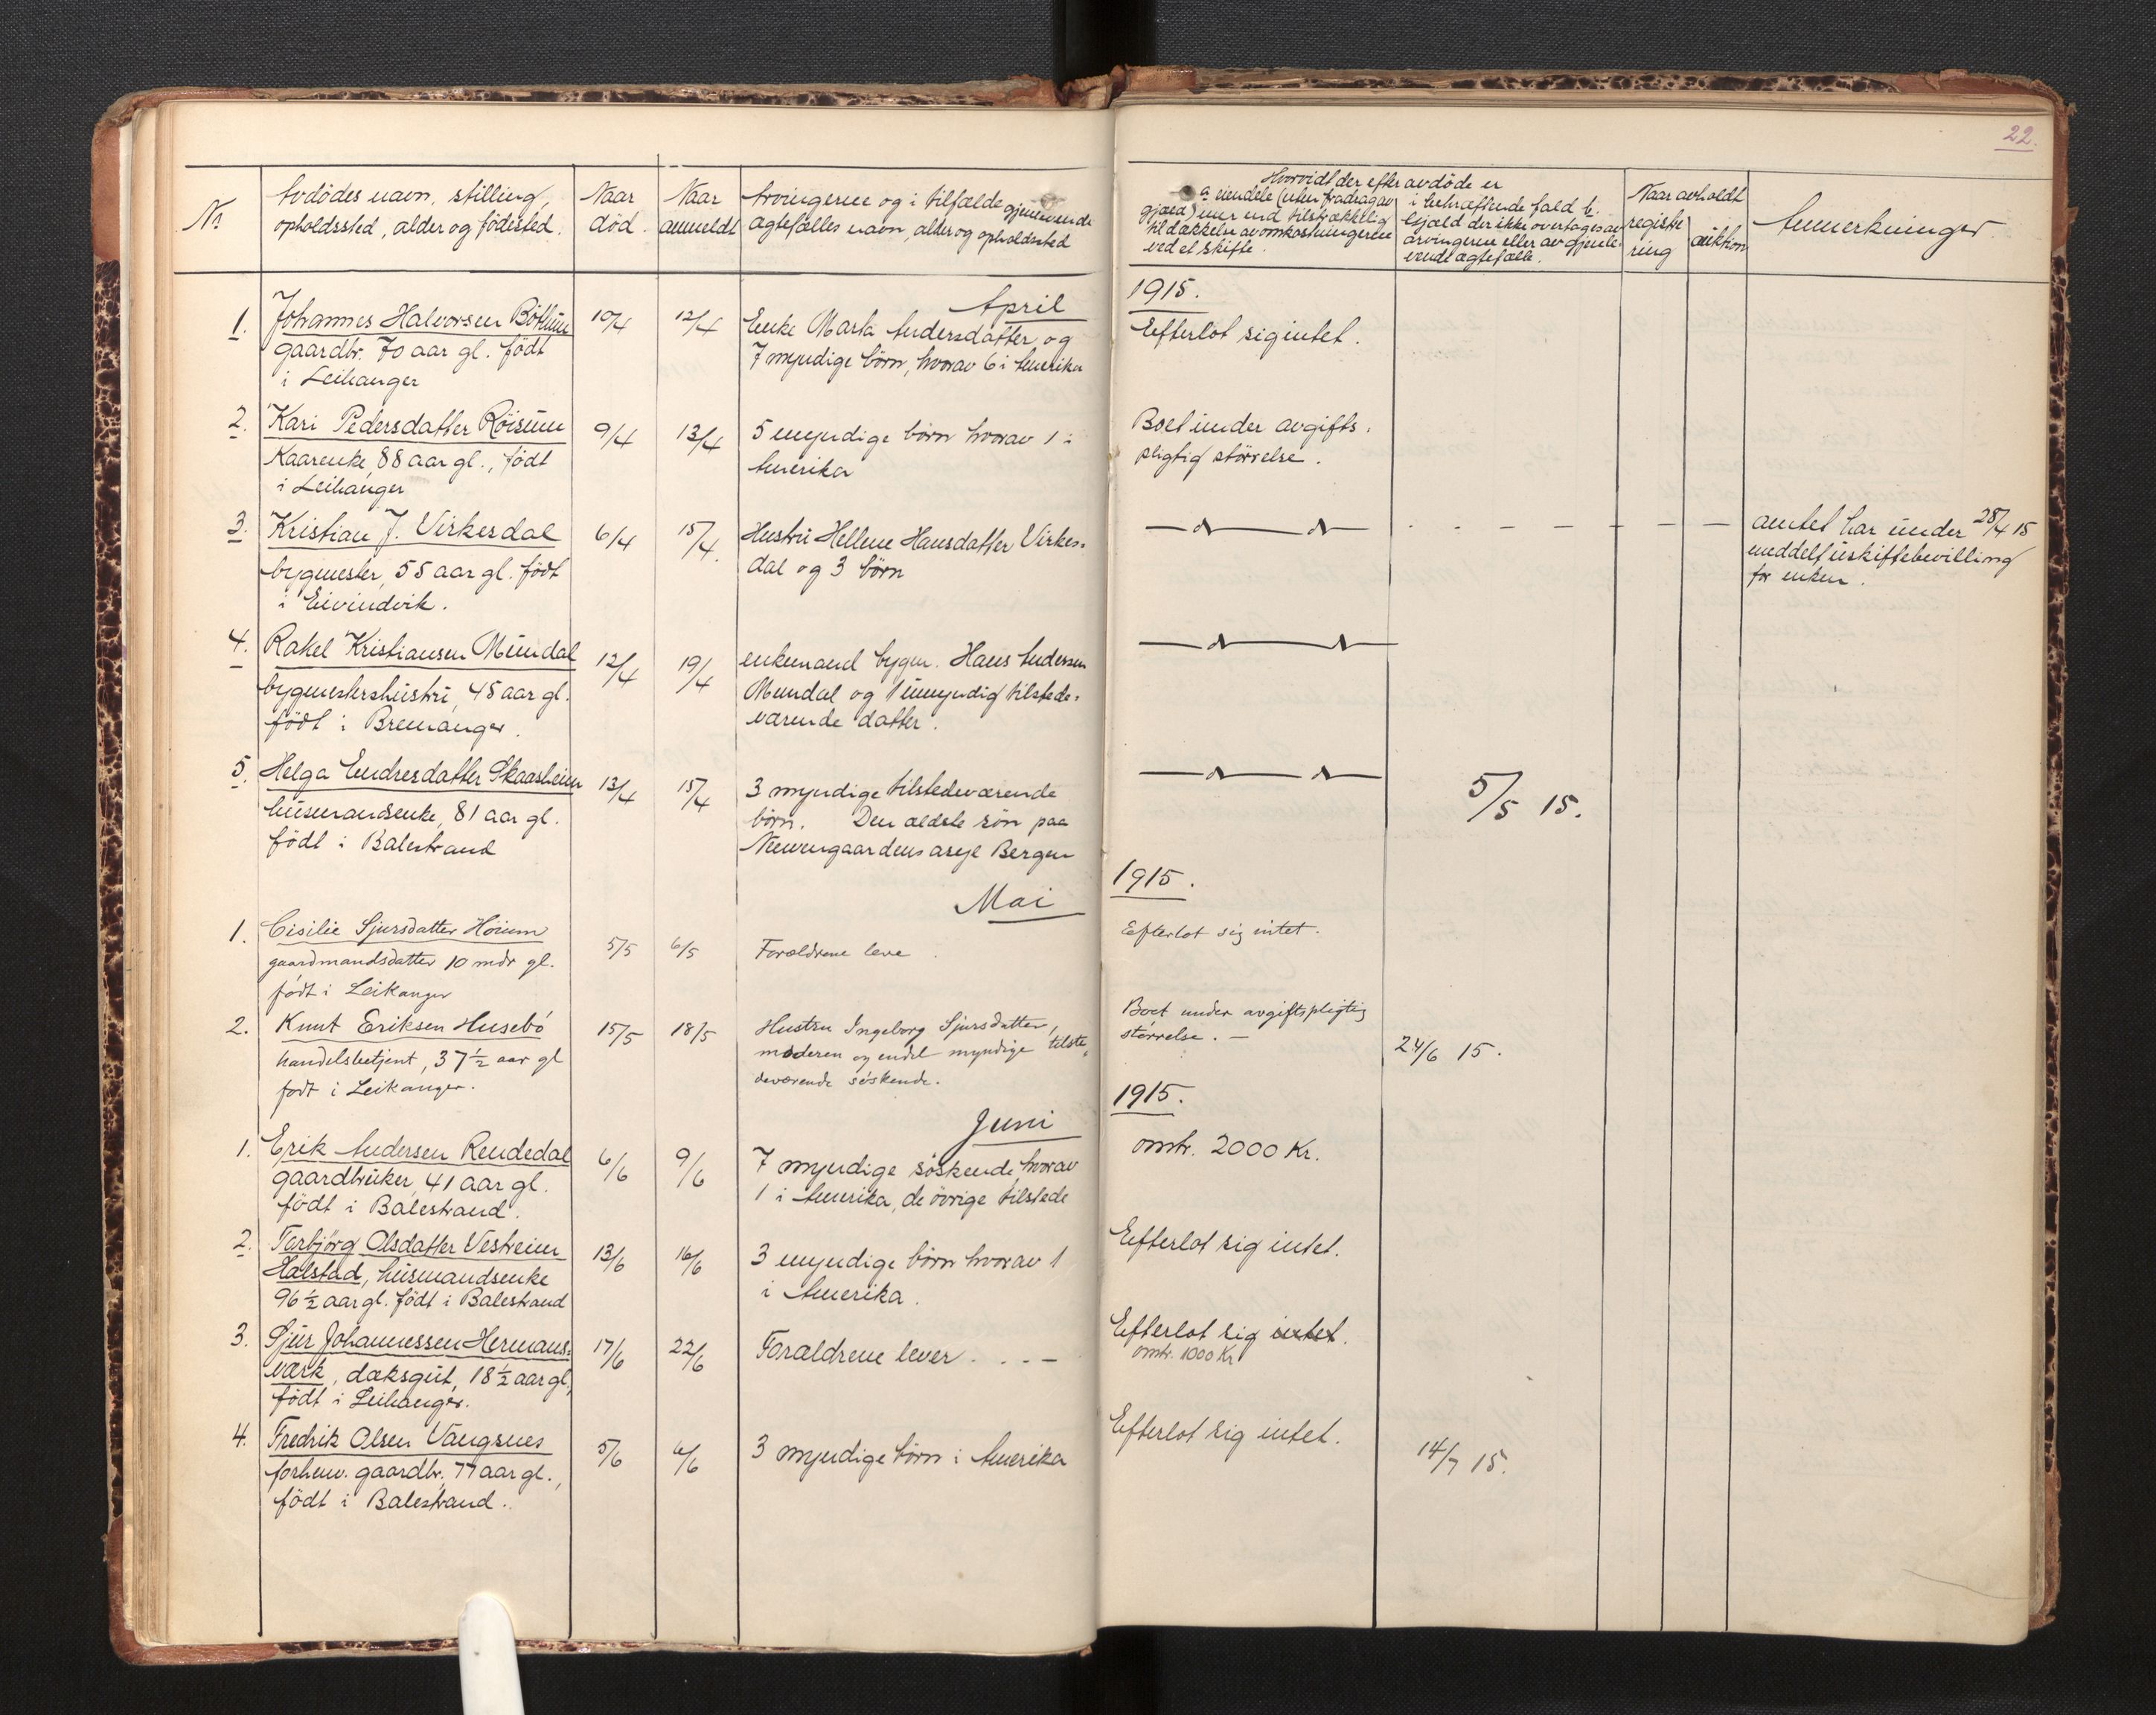 22.
Nr
Avdödes navn, stilling,
opholdssted, alder og födested.
Naar
död.
Naar
anmeldt
Arvingerne og i tilfælde gjenlevende
ægtefælles navn, alder og opholdssted
Hvorvidt der efter avdöde er
a. eiendele (uten fradrag av
gjæld) mer end tilstrækkelig
til dækkelse av omkostningerne
ved et skifte.
i bekræftende fald b.
Gjæld der ikke overtages av
arvingerne eller av gjenle-
vende ægtefælle.
Naar avholdt
registe
ring
auktion
Anmerkninger
April
1915.
1. Johannes Halvorsen Böthun
gaardbr. 70 aar gl. födt
i Leikanger
10/4
12/4
Enke Marta Andersdatter og
7 myndige börn, hvorav 6 i Amerika
Efterlot sig intet.
2. Kari Pedersdatter Röisum
Kaarenke, 88 aar gl., födt
i Leikanger
9/4
13/4
5 myndige börn hvorav 1 i
Amerika
Boet under avgifts-
pligtig störrelse.
3. Kristian J. Virkesdal
bygmester, 55 aar gl. födt
i Eivindvik.
6/4
15/4.
Hustru Hellene Hansdatter Virkes-
dal og 3 börn
amtet har under 28/4 15
meddelt uskiftebevilling
for enken.
4. Rakel Kristiansen Mundal
bygmestershustru, 45 aar gl.
födt i Bremanger.
12/4
19/4
enkemand bygm. Hans Andersen
Mundal og 1 umyndig tilstede-
værende datter.
5. Helga Endresdatter Skaasheim
husmandsenke, 81 aar gl.
födt i Balestrand
13/4
15/4
3 myndige tilstedeværende
börn. Den ældste sön paa
Neevengaardens asyl Bergen
5/5 15.
Mai
1915.
1. Cisilie Sjursdatter Höium
gaardmandsdatter 10 mdr gl.
födt i Leikanger
5/5
6/5
Forældrene leve.
Efterlot sig intet.
2. Knut Eriksen Husebö
handelsbetjent, 37 1/2 aar gl
födt i Leikanger.
15/5
18/5
Hustru Ingeborg Sjursdatter,
moderen og endel myndige tilste-
deværende söskende.
Boet under avgiftspligtig
störrelse. —
24/6 15.
Juni
1915.
1. Erik Andersen Rendedal
gaardbruker, 41 aar gl.
födt i Balestrand.
6/6
9/6
7 myndige söskende, hvorav
1 i Amerika, de övrige tilstede
omtr. 2000 Kr.
2. Torbjörg Olsdatter Vestreim
Halstad, husmandsenke
96 1/2 aar gl. födt i Balestrand
13/6
16/6
3 myndige börn hvorav 1
i Amerika.
Efterlot sig intet.
3. Sjur Johannessen Hermans-
værk, dæksgut, 18 1/2 aar gl,
födt i Leikanger.
17/6
22/6
Forældrene lever. . . —
Efterlot sig intet.
omtr. 1000 Kr
4. Fredrik Olsen Vangsnes
forhenv. gaardbr, 77 aar gl.,
födt i Balestrand.
5/6
6/6
3 myndige börn i Amerika
Efterlot sig intet.
14/7 15.